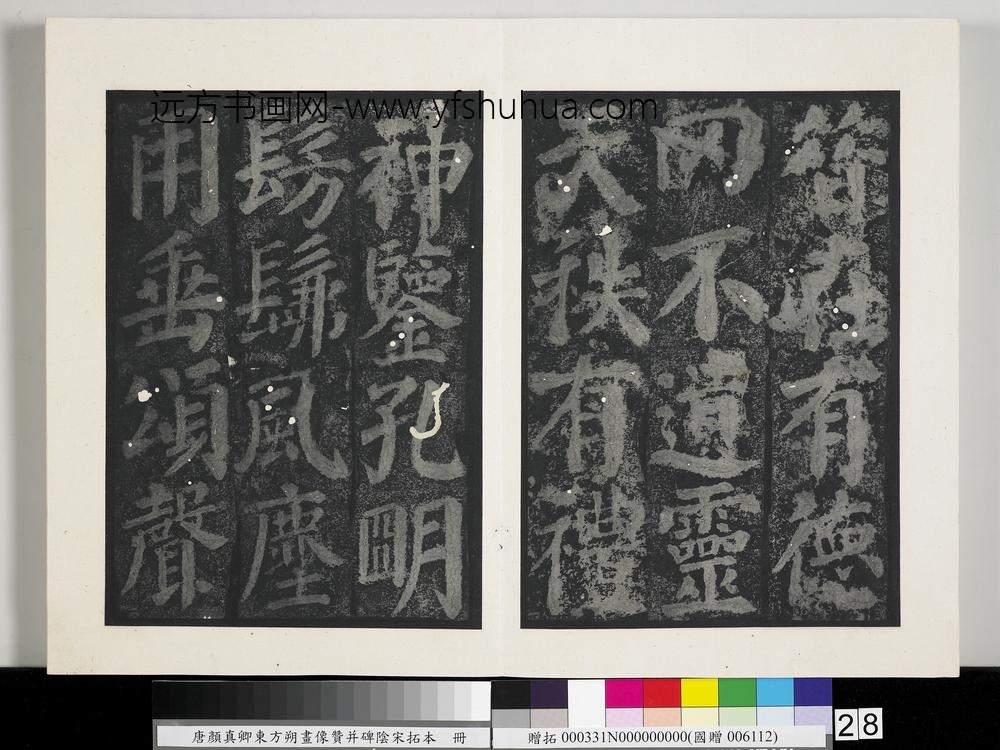 远方书画网-www.yfshuhua.com
昔在有德
罔不遺靈
天秩有禮
神鑒孔明
髣髴風塵
用垂頌聲
唐顏真卿東方朔畫像贊并碑陰宋拓本 冊
贈拓 000331N000000000(國贈 006112)
28